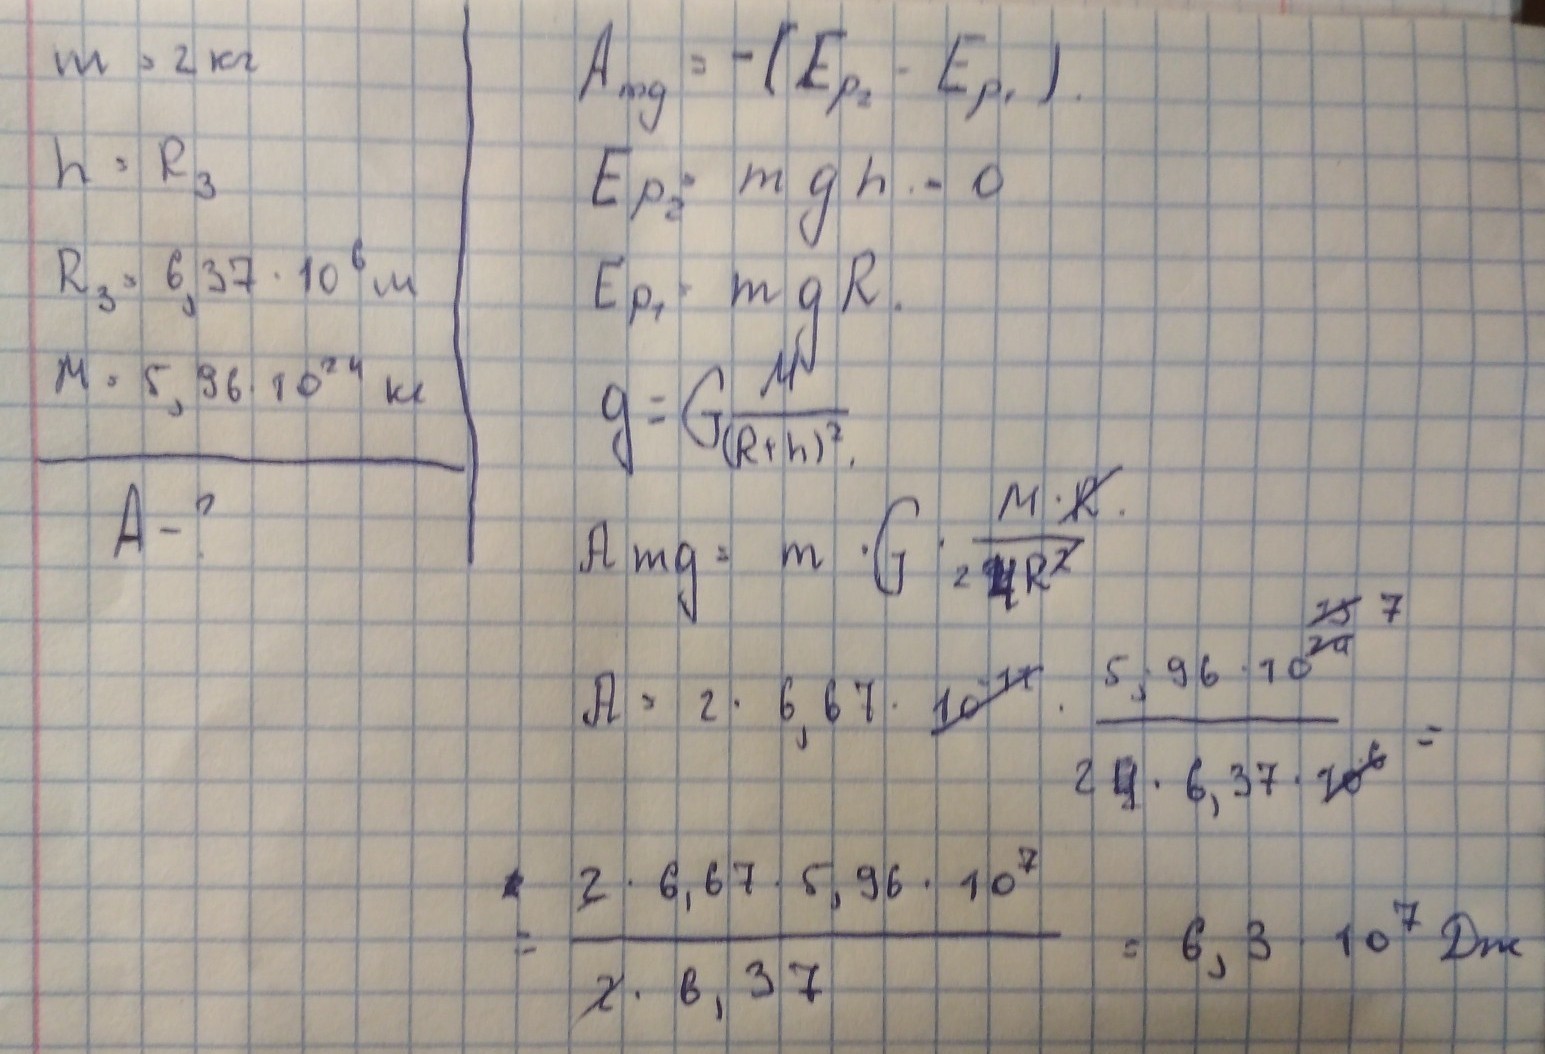 m = 2 кг
h = R₃
R₃ = 6,37 · 10⁶ м
M = 5,96 · 10²⁴ кг
A - ?
A mg = -(Ep₂ - Ep₁).
Ep₂ = mgh = 0
Ep₁ = mgR.
g = G M/(R+h)².
A mg = m · G · M · R/2 4R².
A = 2 · 6,67 · 10⁻¹¹ · 5,96 · 10²⁴ 13 7/2 4 · 6,37 · 10⁶ =
= 2 · 6,67 · 5,96 · 10⁷/2 · 6,37 = 6,3 · 10⁷ Дж